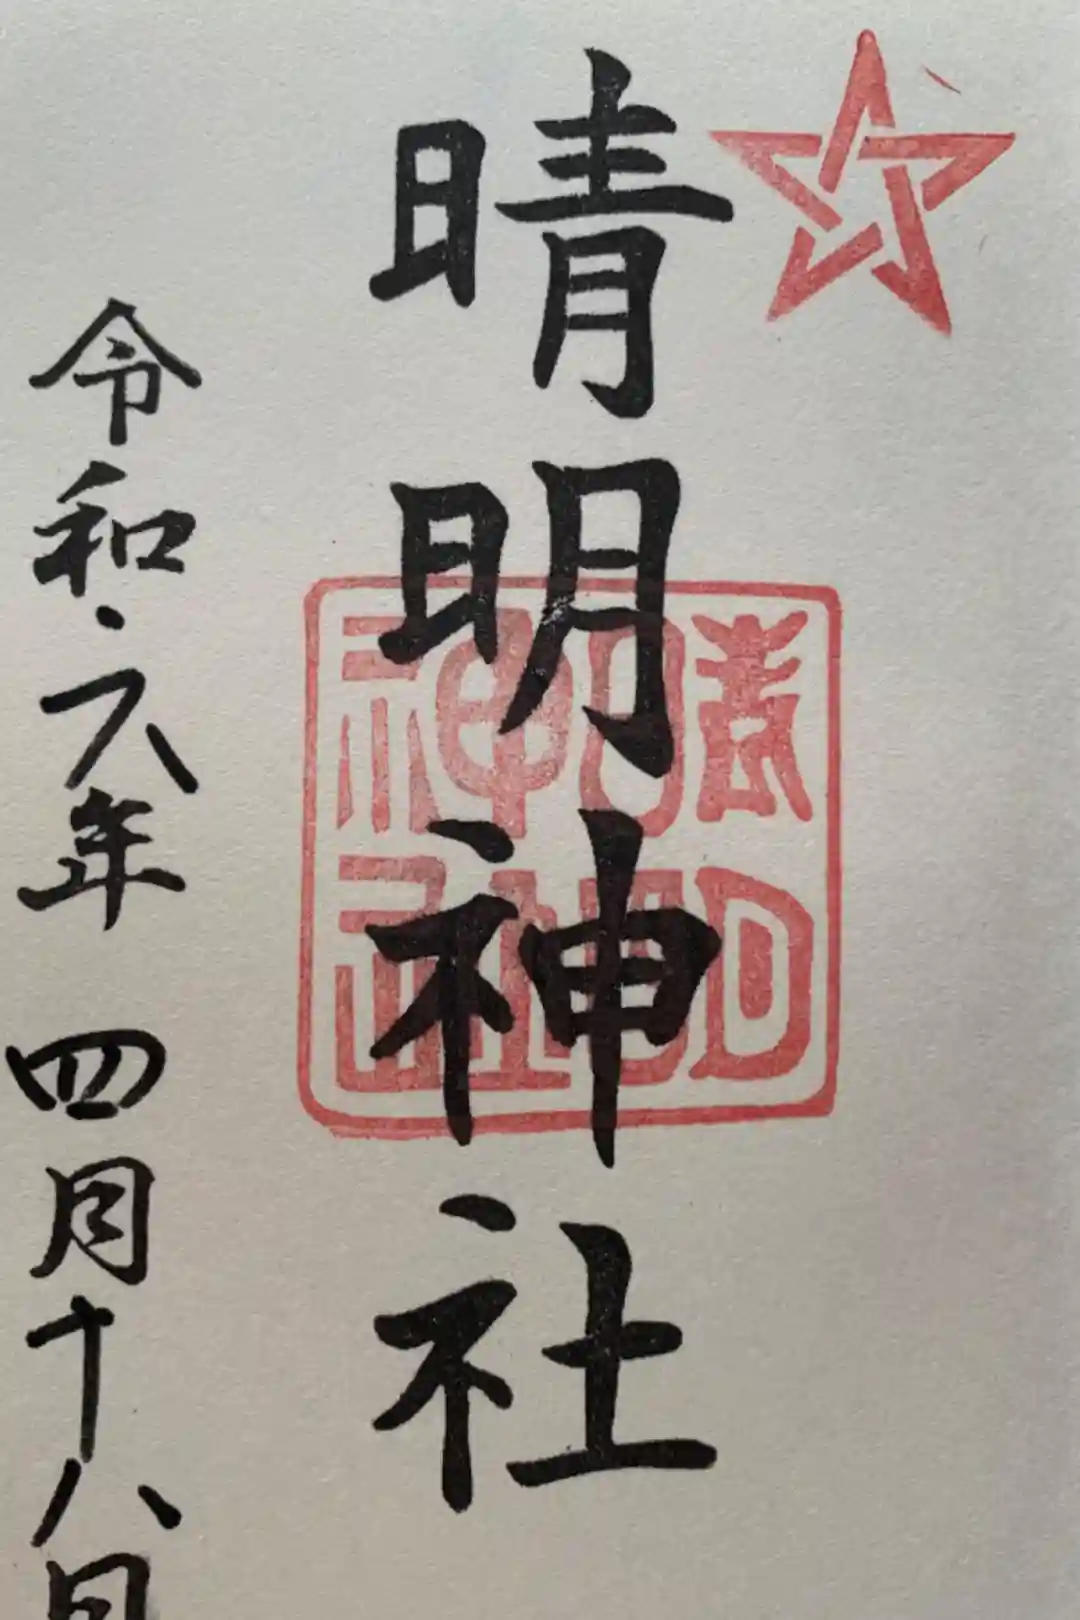 晴明神社
晴明神社
令和六年 四月十八日